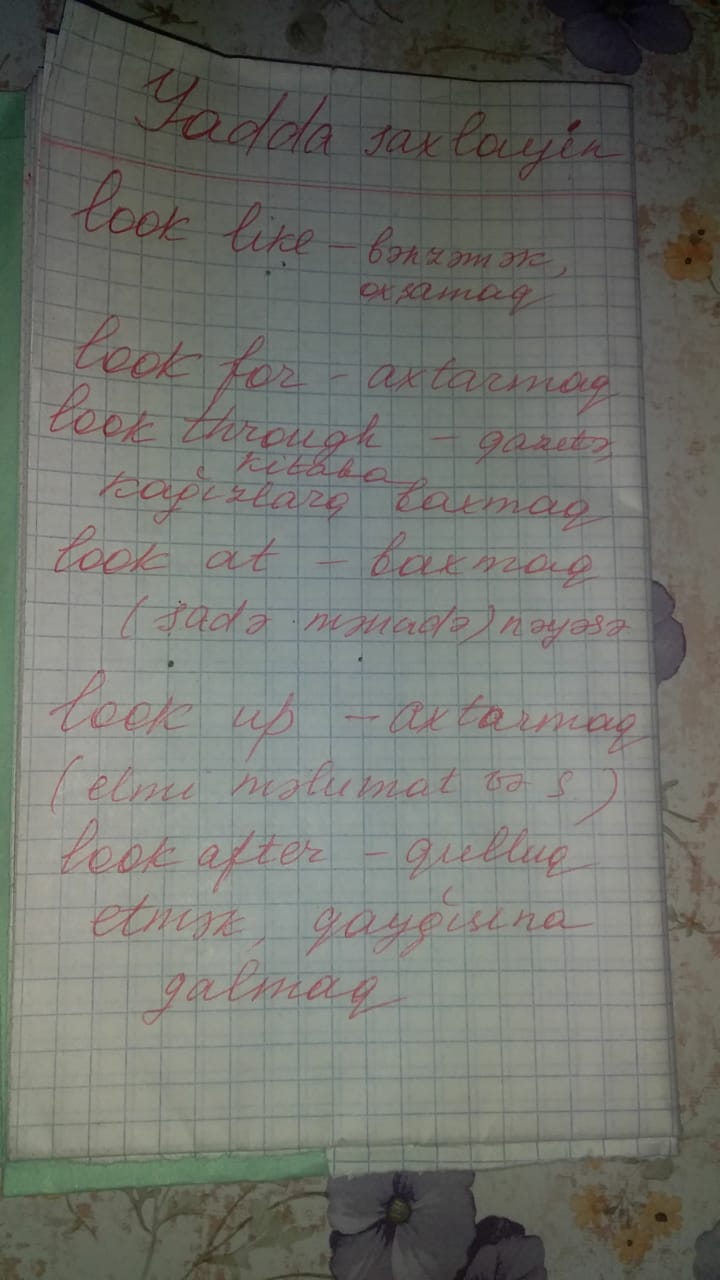 Yadda saxlayın
look like – bənzəmək,
oxşamaq
look for – axtarmaq
look through – qəzetə,
kitaba
kağızlara baxmaq
look at – baxmaq
(sadə mənada) nəyəsə
look up – axtarmaq
(elmi məlumat və s.)
look after – qulluq
etmək, qayğısına
qalmaq